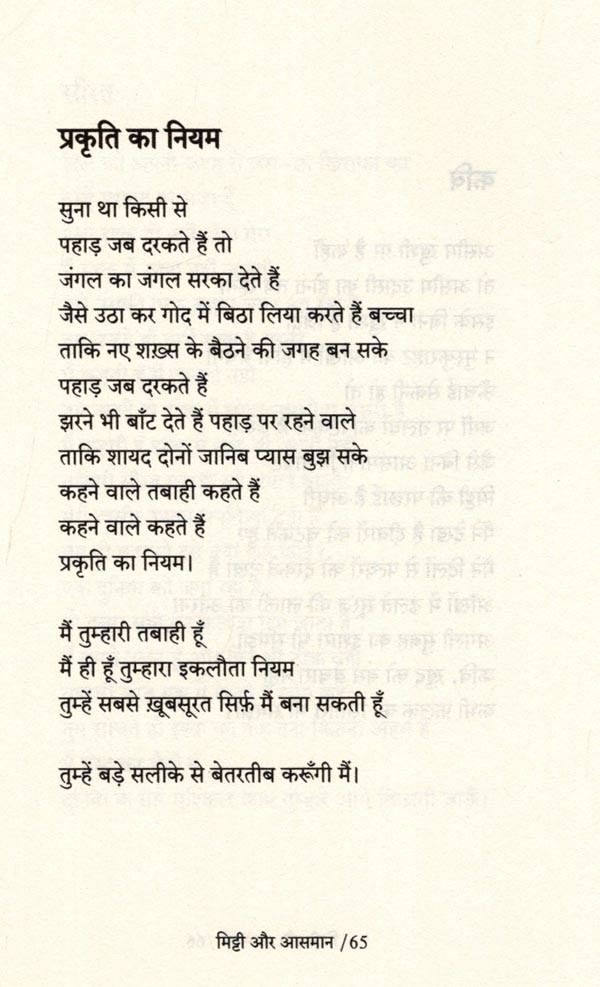 प्रकृति का नियम
सुना था किसी से
पहाड़ जब दरकते हैं तो
जंगल का जंगल सरका देते हैं
जैसे उठा कर गोद में बिठा लिया करते हैं बच्चा
ताकि नए शख़्स के बैठने की जगह बन सके
पहाड़ जब दरकते हैं
झरने भी बाँट देते हैं पहाड़ पर रहने वाले
ताकि शायद दोनों जानिब प्यास बुझ सके
कहने वाले तबाही कहते हैं
कहने वाले कहते हैं
प्रकृति का नियम।
मैं तुम्हारी तबाही हूँ
मैं ही हूँ तुम्हारा इकलौता नियम
तुम्हें सबसे ख़ूबसूरत सिर्फ़ मैं बना सकती हूँ
तुम्हें बड़े सलीके से बेतरतीब करूँगी मैं।
मिट्टी और आसमान /65